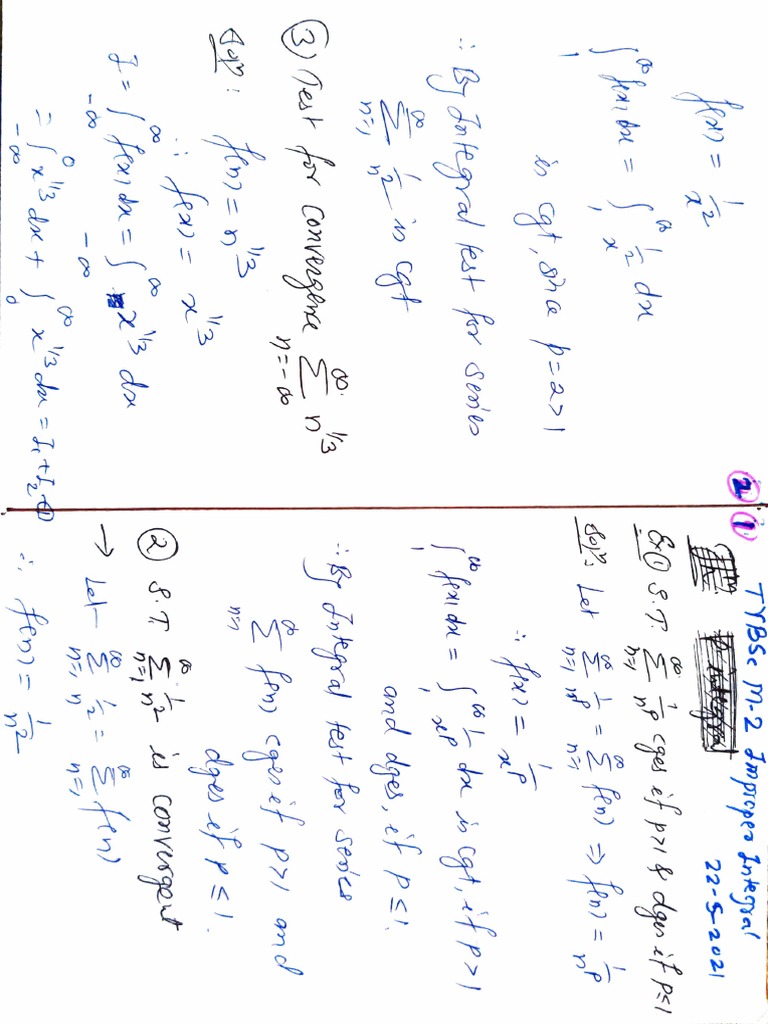 ② ① TYBSc M-2 Improper Integral
22-5-2021
Ex① S.T. ∑_{n=1}^{∞} 1/n^p cges if p>1 & dges if p≤1
Solⁿ: Let ∑_{n=1}^{∞} 1/n^p = ∑_{n=1}^{∞} f(n) ⇒ f(n) = 1/n^p
∴ f(x) = 1/x^p
∫_1^∞ f(x) dx = ∫_1^∞ 1/x^p dx is cgt, if p>1
and dges, if p≤1.
∴ By Integral test for series
∑_{n=1}^{∞} f(n) cges if p>1 and
dges if p≤1.
② S.T ∑_{n=1}^{∞} 1/n² is convergent
→ Let ∑_{n=1}^{∞} 1/n² = ∑_{n=1}^{∞} f(n)
∴ f(n) = 1/n²
f(x) = 1/x²
∫_1^∞ f(x) dx = ∫_1^∞ 1/x² dx
is cgt, since p=2>1
∴ By Integral test for series
∑_{n=1}^{∞} 1/n² is cgt
③ Test for convergence ∑_{n=-∞}^{∞} n^{1/3}
Solⁿ: f(n) = n^{1/3}
∴ f(x) = x^{1/3}
I = ∫_{-∞}^{∞} f(x) dx = ∫_{-∞}^{∞} x^{1/3} dx
= ∫_{-∞}^{0} x^{1/3} dx + ∫_0^∞ x^{1/3} dx = I₁+I₂-①